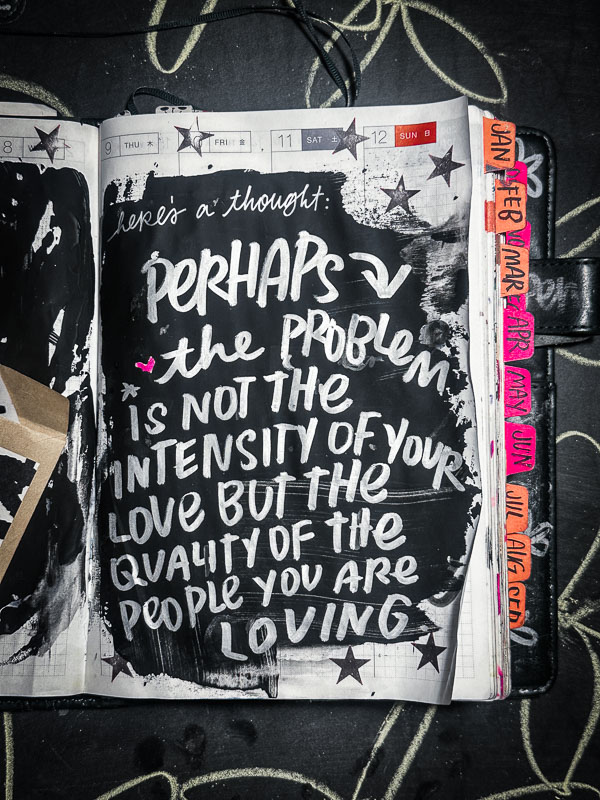 8
9 THU 木
FRI 金
11 SAT 土
12 SUN 日
here's a thought:
PERHAPS
the PROBLEM
IS NOT THE
INTENSITY OF YOUR
LOVE BUT THE
QUALITY OF THE
PEOPLE YOU ARE
LOVING
JAN
FEB
MAR
APR
MAY
JUN
JUL
AUG
SEP